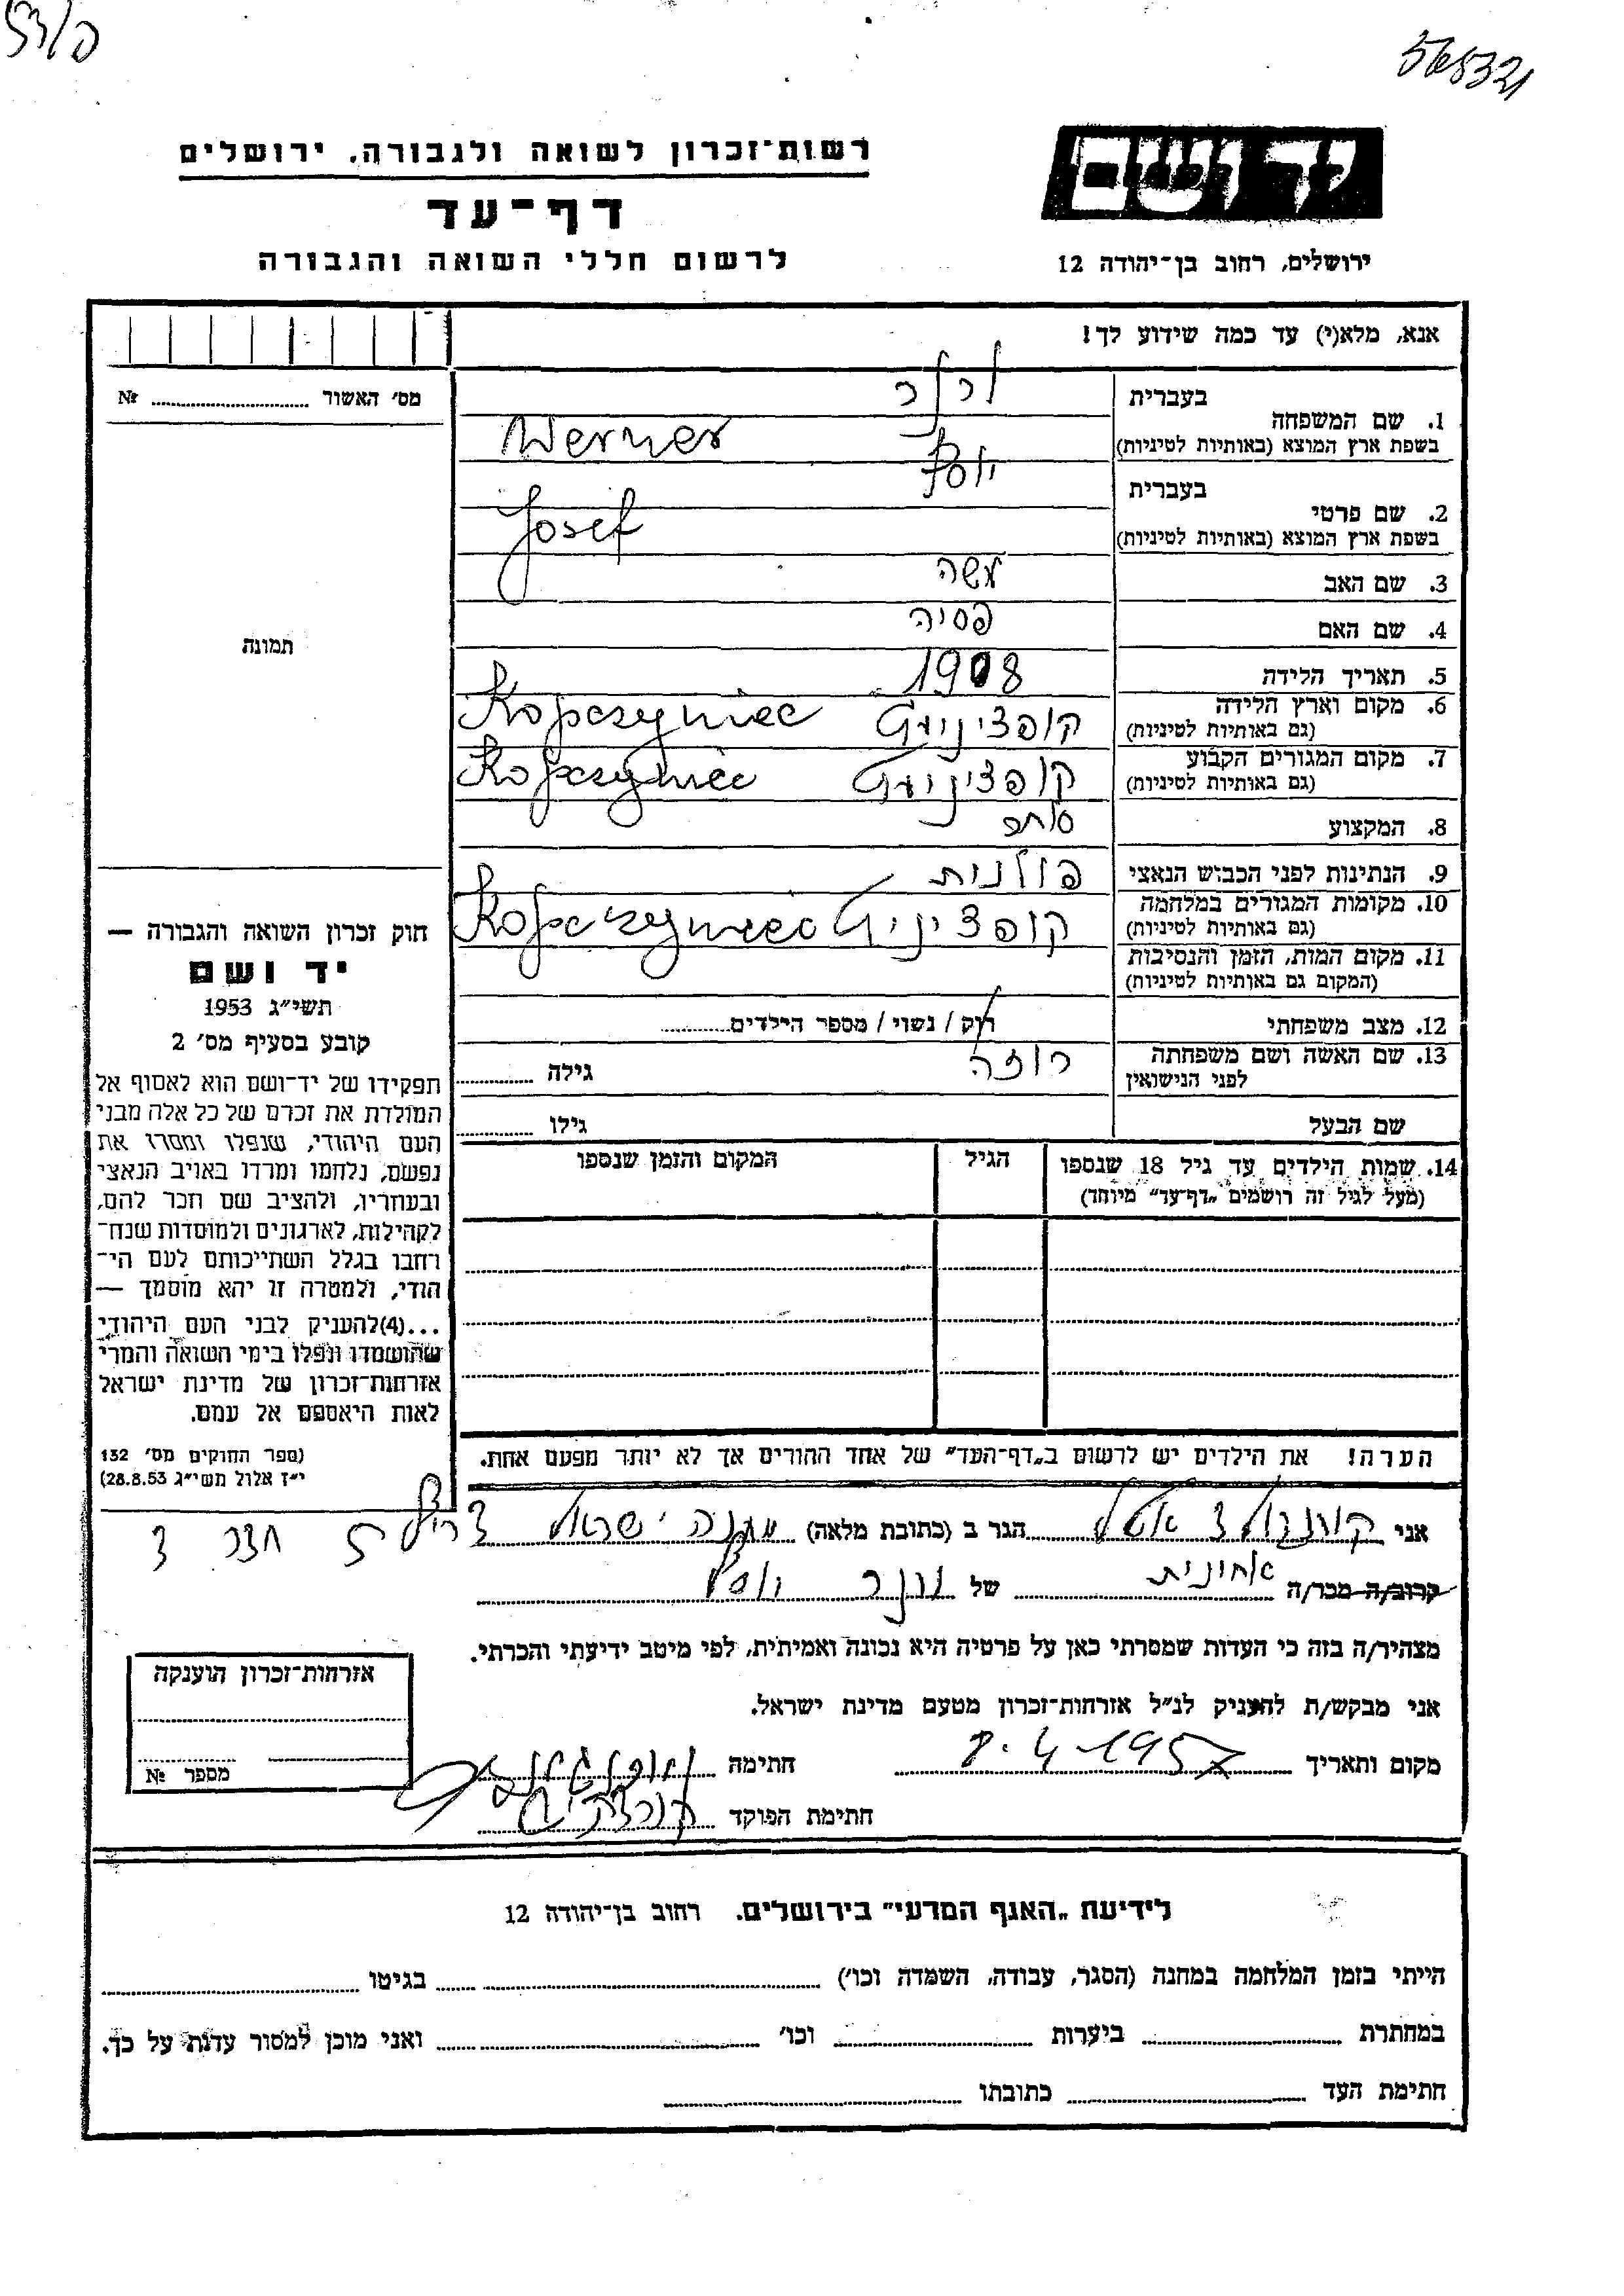 565321
רשות־זכרון לשואה ולגבורה, ירושלים
דף־עד
לרשום חללי השואה והגבורה
יד ושם
ירושלים, רחוב בן־יהודה 12
אנא, מלא(י) עד כמה שידוע לך!
מס׳ האשור № 
1. שם המשפחה בעברית ורנר
בשפת ארץ המוצא (באותיות לטיניות) Werner
2. שם פרטי בעברית יוסף
בשפת ארץ המוצא (באותיות לטיניות) Josef
3. שם האב משה
4. שם האם פסיה
5. תאריך הלידה 1908
6. מקום וארץ הלידה קופציניץ Kopczyniec
(גם באותיות לטיניות)
7. מקום המגורים הקבוע קופציניץ Kopczyniec
(גם באותיות לטיניות)
8. המקצוע סוחר
9. הנתינות לפני הכבוש הנאצי פולנית
10. מקומות המגורים במלחמה קופציניץ Kopczyniec
(גם באותיות לטיניות)
11. מקום המות, הזמן והנסיבות
(המקום גם באותיות לטיניות)
12. מצב משפחתי רוק / נשוי / מספר הילדים
13. שם האשה ושם משפחתה רוזה גילה
לפני הנישואין
שם הבעל גילו
14. שמות הילדים עד גיל 18 שנספו הגיל המקום והזמן שנספו
(מעל לגיל זה רושמים „דף־עד״ מיוחד)
תמונה
חוק זכרון השואה והגבורה —
יד ושם
תשי״ג 1953
קובע בסעיף מס׳ 2
תפקידו של יד־ושם הוא לאסוף אל
המולדת את זכרם של כל אלה מבני
העם היהודי, שנפלו ומסרו את
נפשם, נלחמו ומרדו באויב הנאצי
ובעוזריו, ולהציב שם וזכר להם,
לקהילות, לארגונים ולמוסדות שנח־
רבו בגלל השתייכותם לעם הי־
הודי, ולמטרה זו יהא מוסמך —
...(4)להעניק לבני העם היהודי
שהושמדו ונפלו בימי השואה והמרי
אזרחות־זכרון של מדינת ישראל
לאות היאספם אל עמם.
(ספר החוקים מס׳ 132
י״ז אלול תשי״ג 28.8.53)
הערה! את הילדים יש לרשום ב„דף־העד״ של אחד ההורים אך לא יותר מפעם אחת.
אני הגר ב (כתובת מלאה) מחנה ישראל צריף חדר
קרוב/ה מכר/ה אחינית של ורנר יוסף
מצהיר/ה בזה כי העדות שמסרתי כאן על פרטיה היא נכונה ואמיתית, לפי מיטב ידיעתי והכרתי.
אני מבקש/ת להעניק לנ״ל אזרחות־זכרון מטעם מדינת ישראל.
מקום ותאריך 8.4.1957 חתימה
חתימת הפוקד
אזרחות־זכרון הוענקה
מספר №
לידיעת „האגף המדעי״ בירושלים. רחוב בן־יהודה 12
הייתי בזמן המלחמה במחנה (הסגר, עבודה, השמדה וכו׳) בגיטו
במחתרת ביערות וכו׳ ואני מוכן למסור עדות על כך.
חתימת העד כתובתו